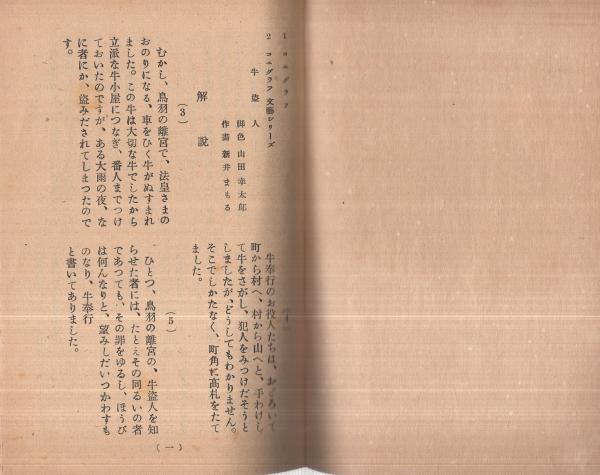 1 コニグラフ
2 コニグラフ 文藝シリーズ
牛盗人
脚色 山田幸太郎
作畵 新井まもる
解説
(3)
むかし、鳥羽の離宮で、法皇さまの
おのりになる、車をひく牛がぬすまれ
ました。この牛は大切な牛でしたから
立派な牛小屋につなぎ、番人までつけ
ておいたのですが、ある大雨の夜、な
に者にか、盗みだされてしまつたので
す。
(4)
牛奉行のお役人たちは、おどろいて
町から村へ、村から山へと、手わけし
て牛をさがし、犯人をみつけだそうと
しましたが、どうしてもわかりません。
そこでしかたなく、町角に高札をたて
ました。
(5)
ひとつ、鳥羽の離宮の、牛盗人を知
らせた者には、たとえその同るいの者
であつても、その罪をゆるし、ほうび
は何んなりと、望みしだいつかわすも
のなり、牛奉行
と書いてありました。
(一)